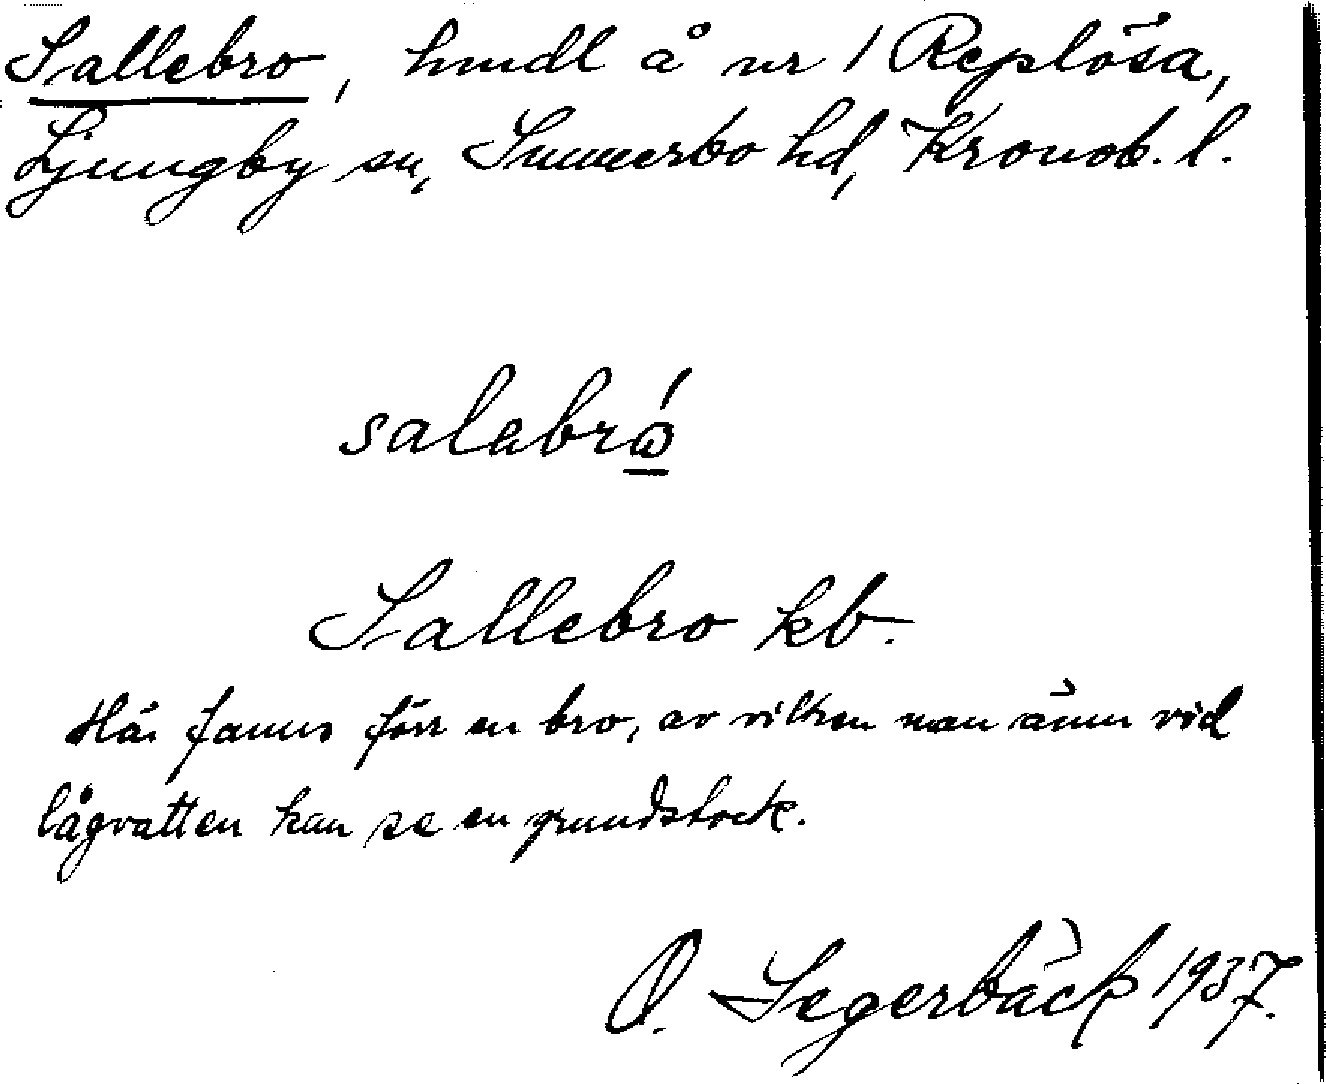 Sallebro, hmdl å nr 1 Replösa,
Ljungby sn, Sunnerbo hd, Kronob. l.
salabró
Sallebro kb.
Här fanns förr en bro, av vilken man ännu vid
lågvatten kan se en grundstock.
O. Segerbäck 1937.